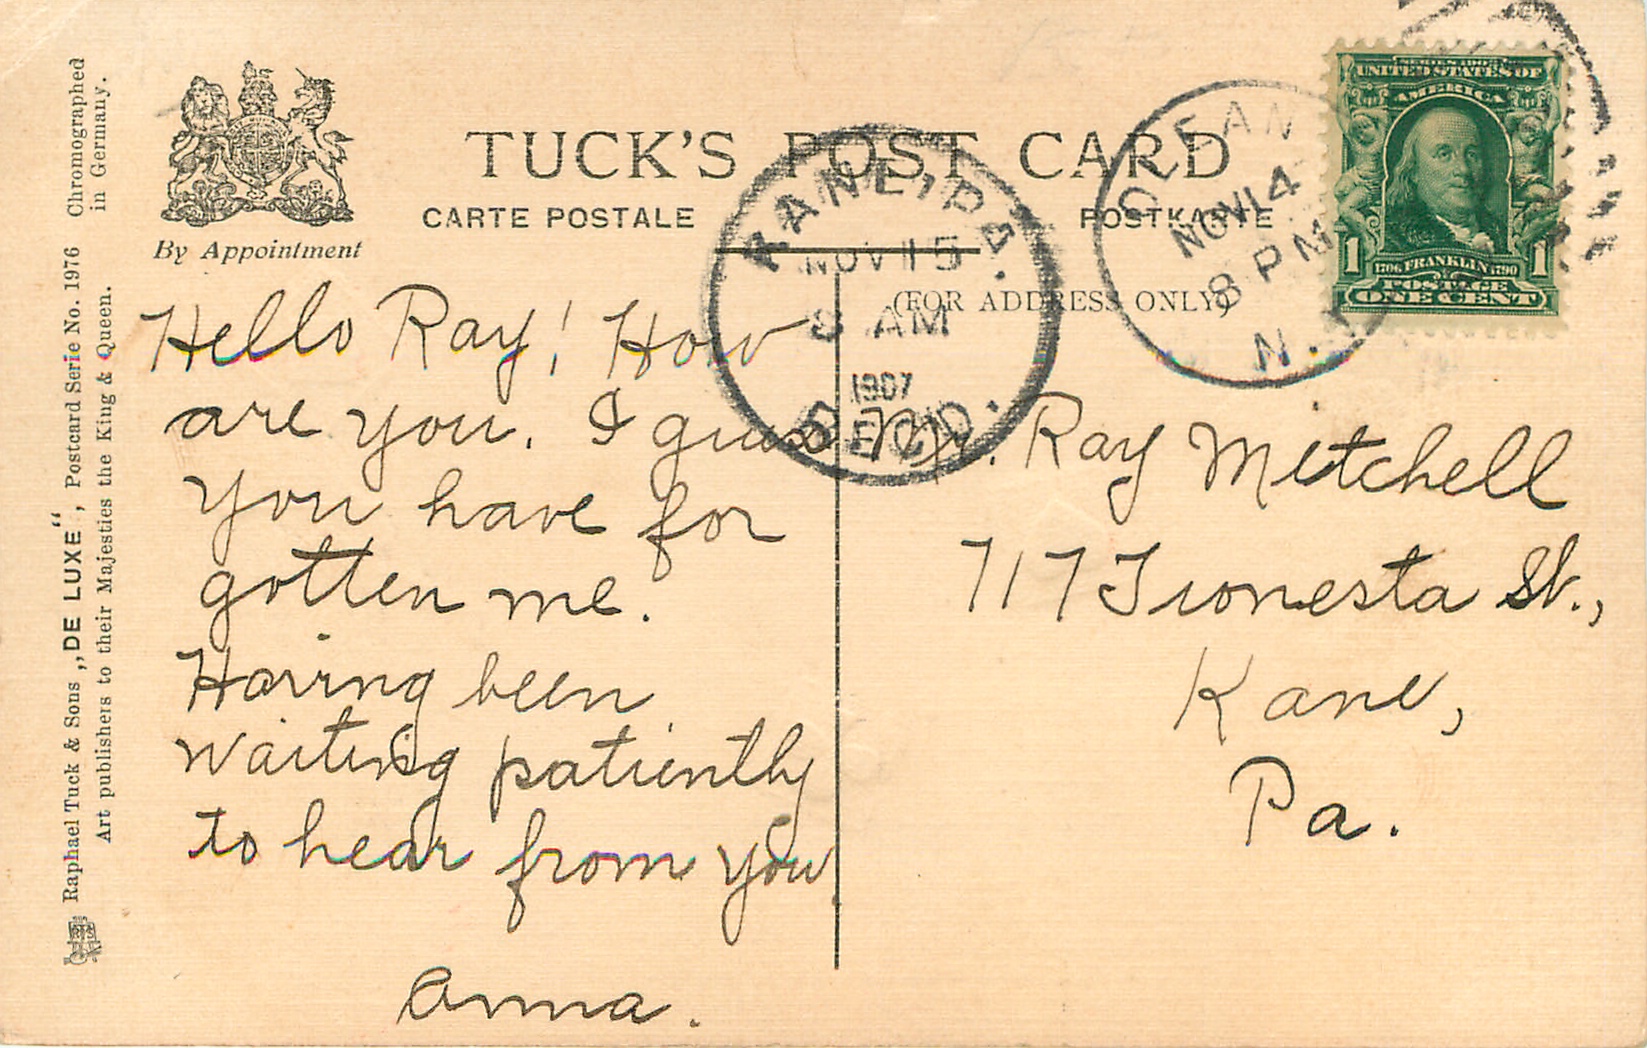 Chromographed
in Germany.
Raphael Tuck & Sons „DE LUXE“, Postcard Serie No. 1976
Art publishers to their Majesties the King & Queen.
By Appointment
TUCK'S POST CARD
CARTE POSTALE
POSTKARTE
(FOR ADDRESS ONLY)
KANE, PA.
NOV 15
8 AM
1907
REC'D.
OLEAN
NOV 14
8 PM
N.Y.
SERIES 1902
UNITED STATES OF
AMERICA
1 1
1706 FRANKLIN 1790
POSTAGE
ONE CENT
Hello Ray! How
are you. I guess
you have for
gotten me.
Having been
waiting patiently
to hear from you
Anna.
Mr. Ray Mitchell
717 Tionesta St.,
Kane,
Pa.